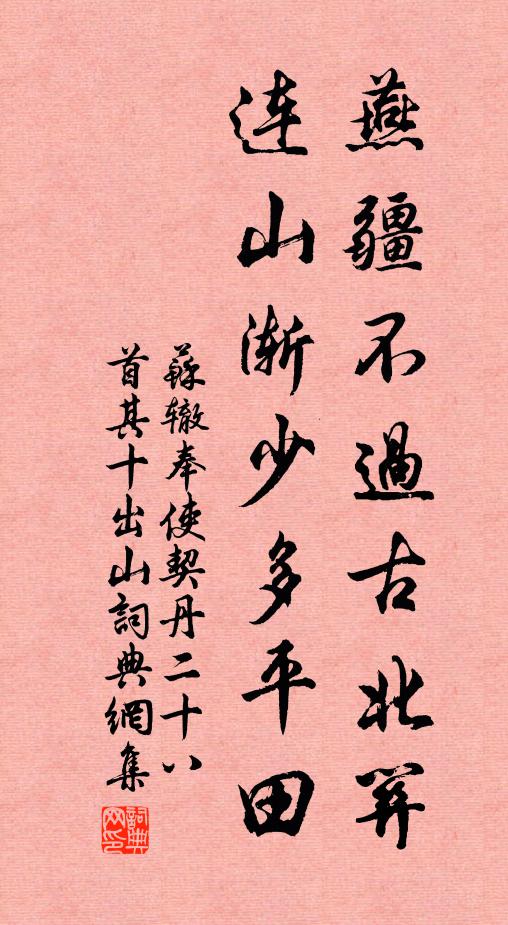 燕疆不過古北關
連山漸少多平田
蘇轍奉使契丹二十八
首其十出山詞典網集
詞典網印